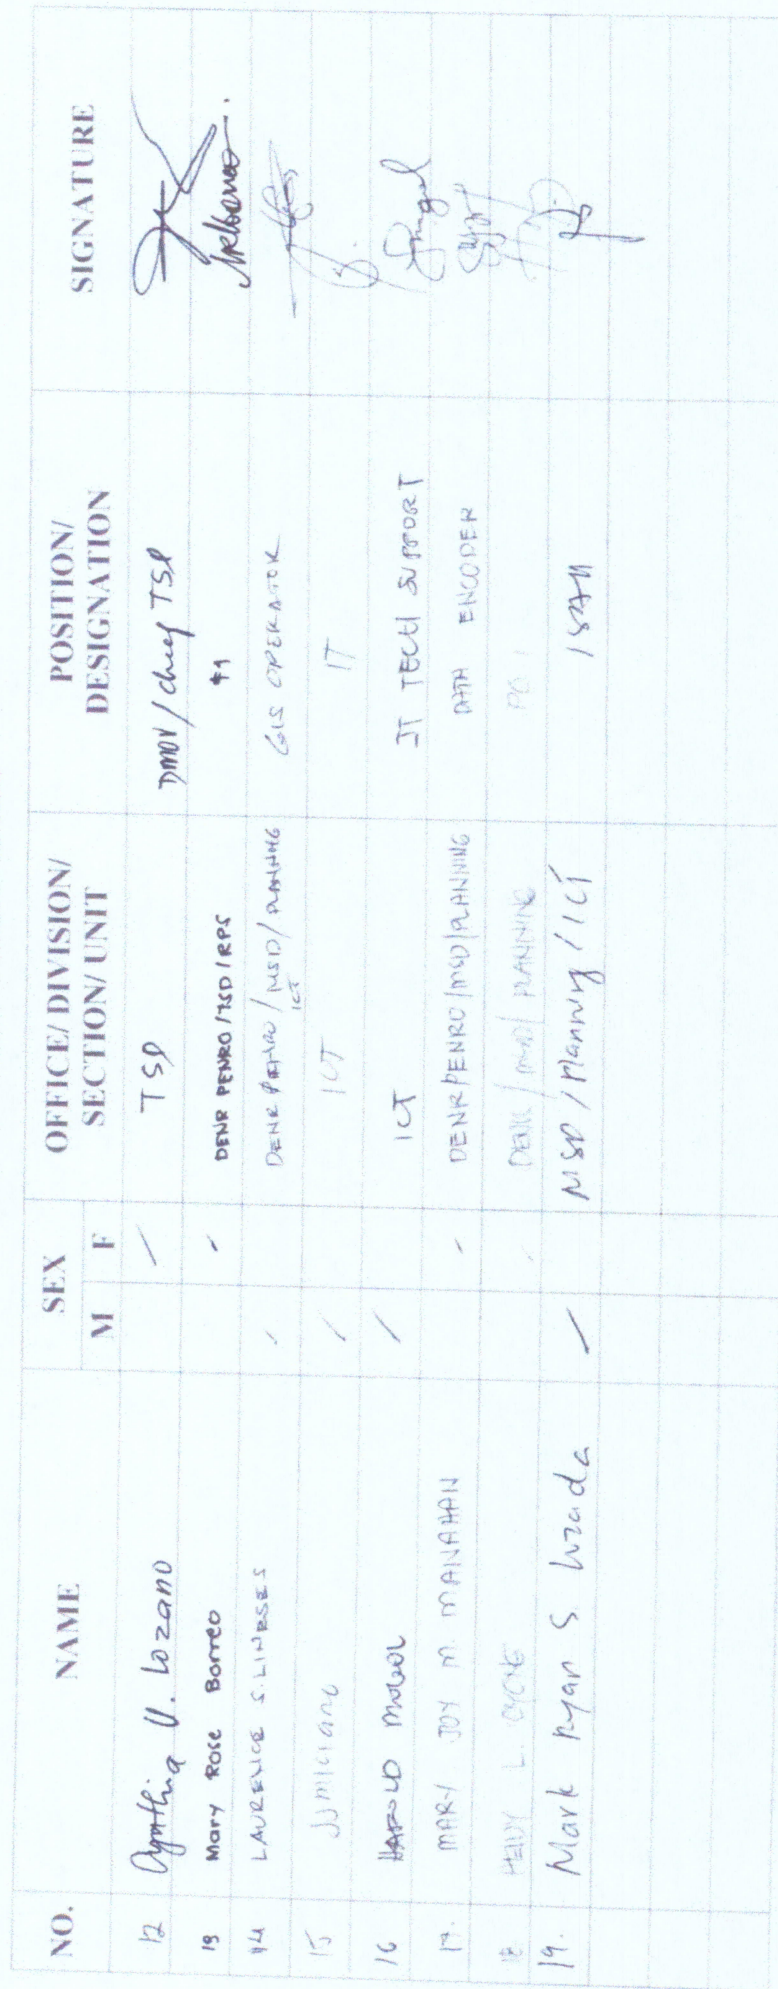 NO. NAME SEX OFFICE/ DIVISION/ POSITION/ SIGNATURE
M F SECTION/ UNIT DESIGNATION
12 Cynthia U. Lozano / TSD DMOV / Chief TSD
13 Mary Rose Borreo / DENR PENRO/TSD/RPS
14 LAURENCE S. LINESES / DENR PENRO / MSD / PLANNING GIS OPERATOR
ICT
15 / ICT IT
16 HAROLD / ICT IT TECH SUPPORT
17. MARY JOY M. MANAHAN / DENR/PENRO/MSD/PLANNING DATA ENCODER
18 L. / DENR / MSD / PLANNING PO 1
19. Mark Ryan S. Luzada / MSD / Planning / ICT